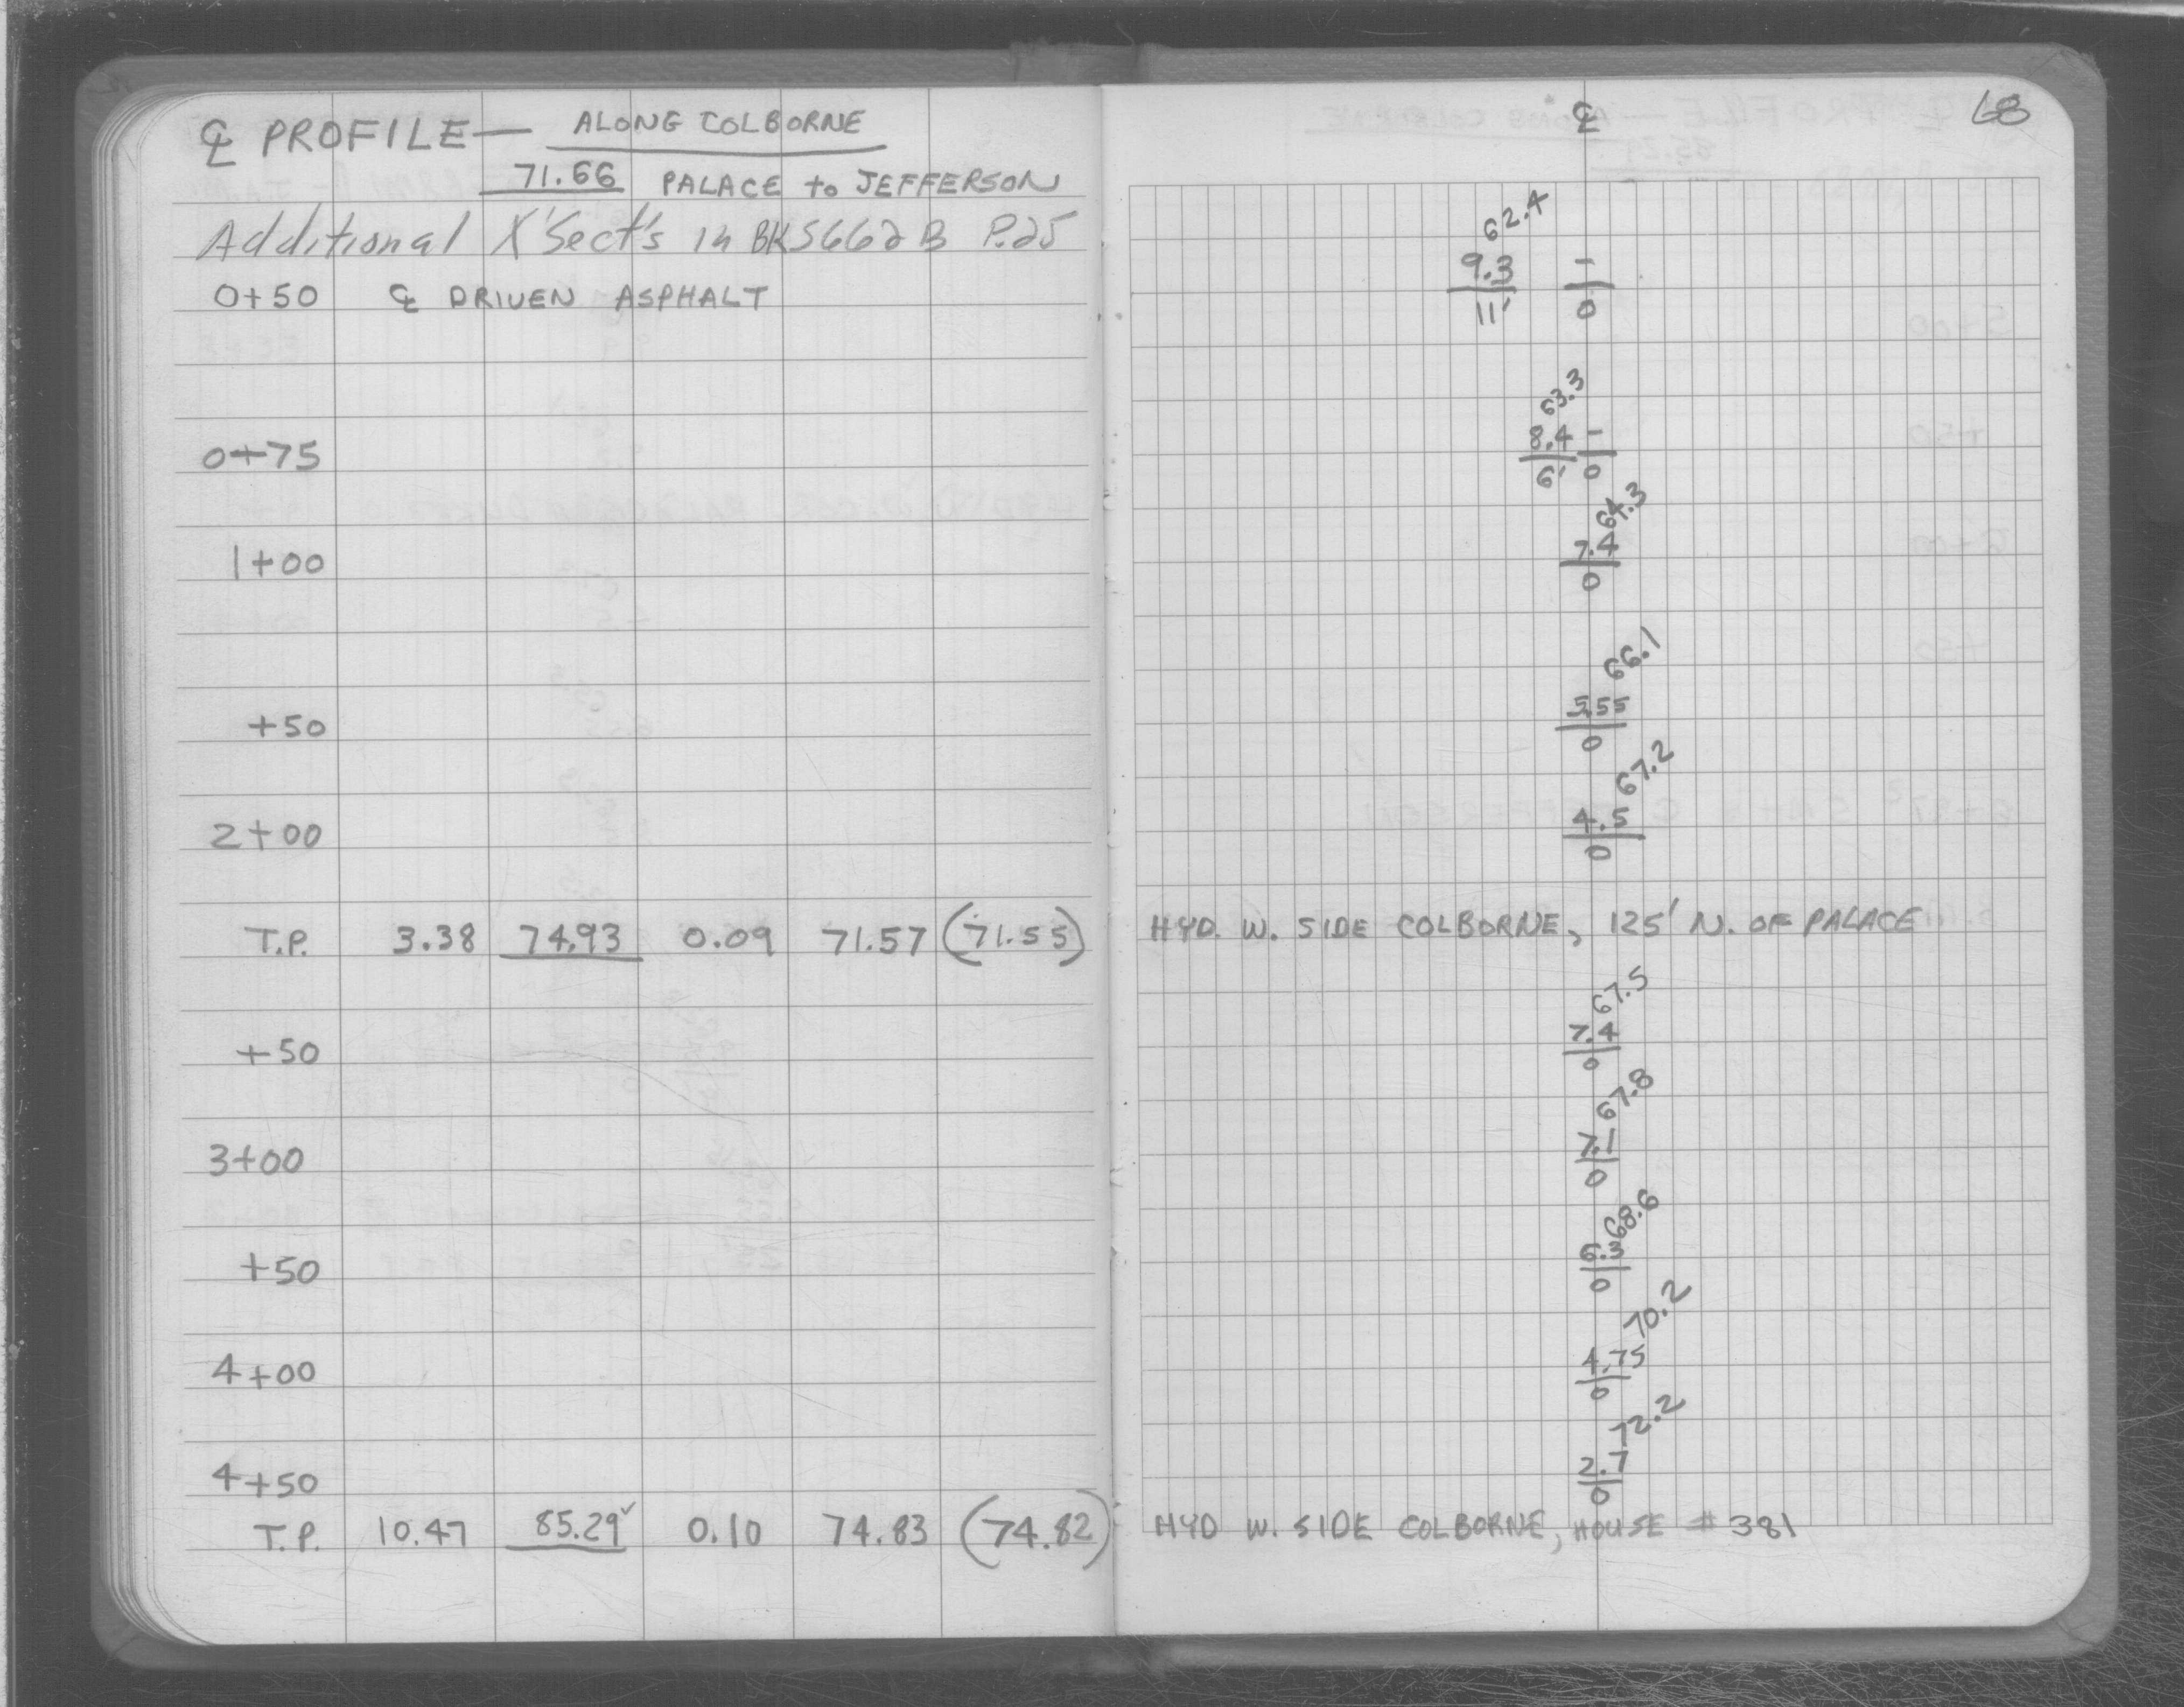 ℄ PROFILE — ALONG COLBORNE
71.66 PALACE to JEFFERSON
Additional X'Sect's in BK5662B P.25
0+50 ℄ DRIVEN ASPHALT
0+75
1+00
+50
2+00
T.P. 3.38 74.93 0.09 71.57 (71.55)
+50
3+00
+50
4+00
4+50
T.P. 10.47 85.29✓ 0.10 74.83 (74.82)
℄ 68
62.4
9.3 -
11' 0
63.3
8.4 -
6' 0
64.3
7.4
0
66.1
5.55
0
67.2
4.5
0
HYD. W. SIDE COLBORNE, 125' N. OF PALACE
67.5
7.4
0
67.8
7.1
0
68.6
6.3
0
70.2
4.75
0
72.2
2.7
0
HYD W. SIDE COLBORNE, HOUSE # 381